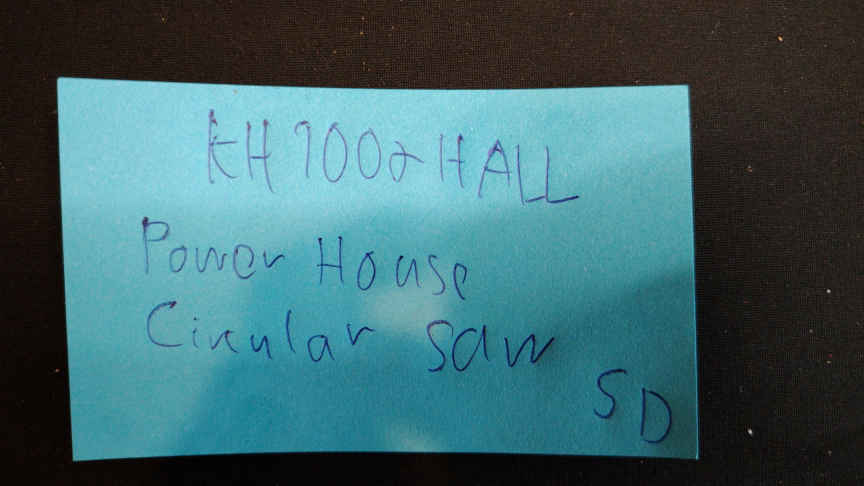 KH 9002 HALL
Power House
Circular saw
SD